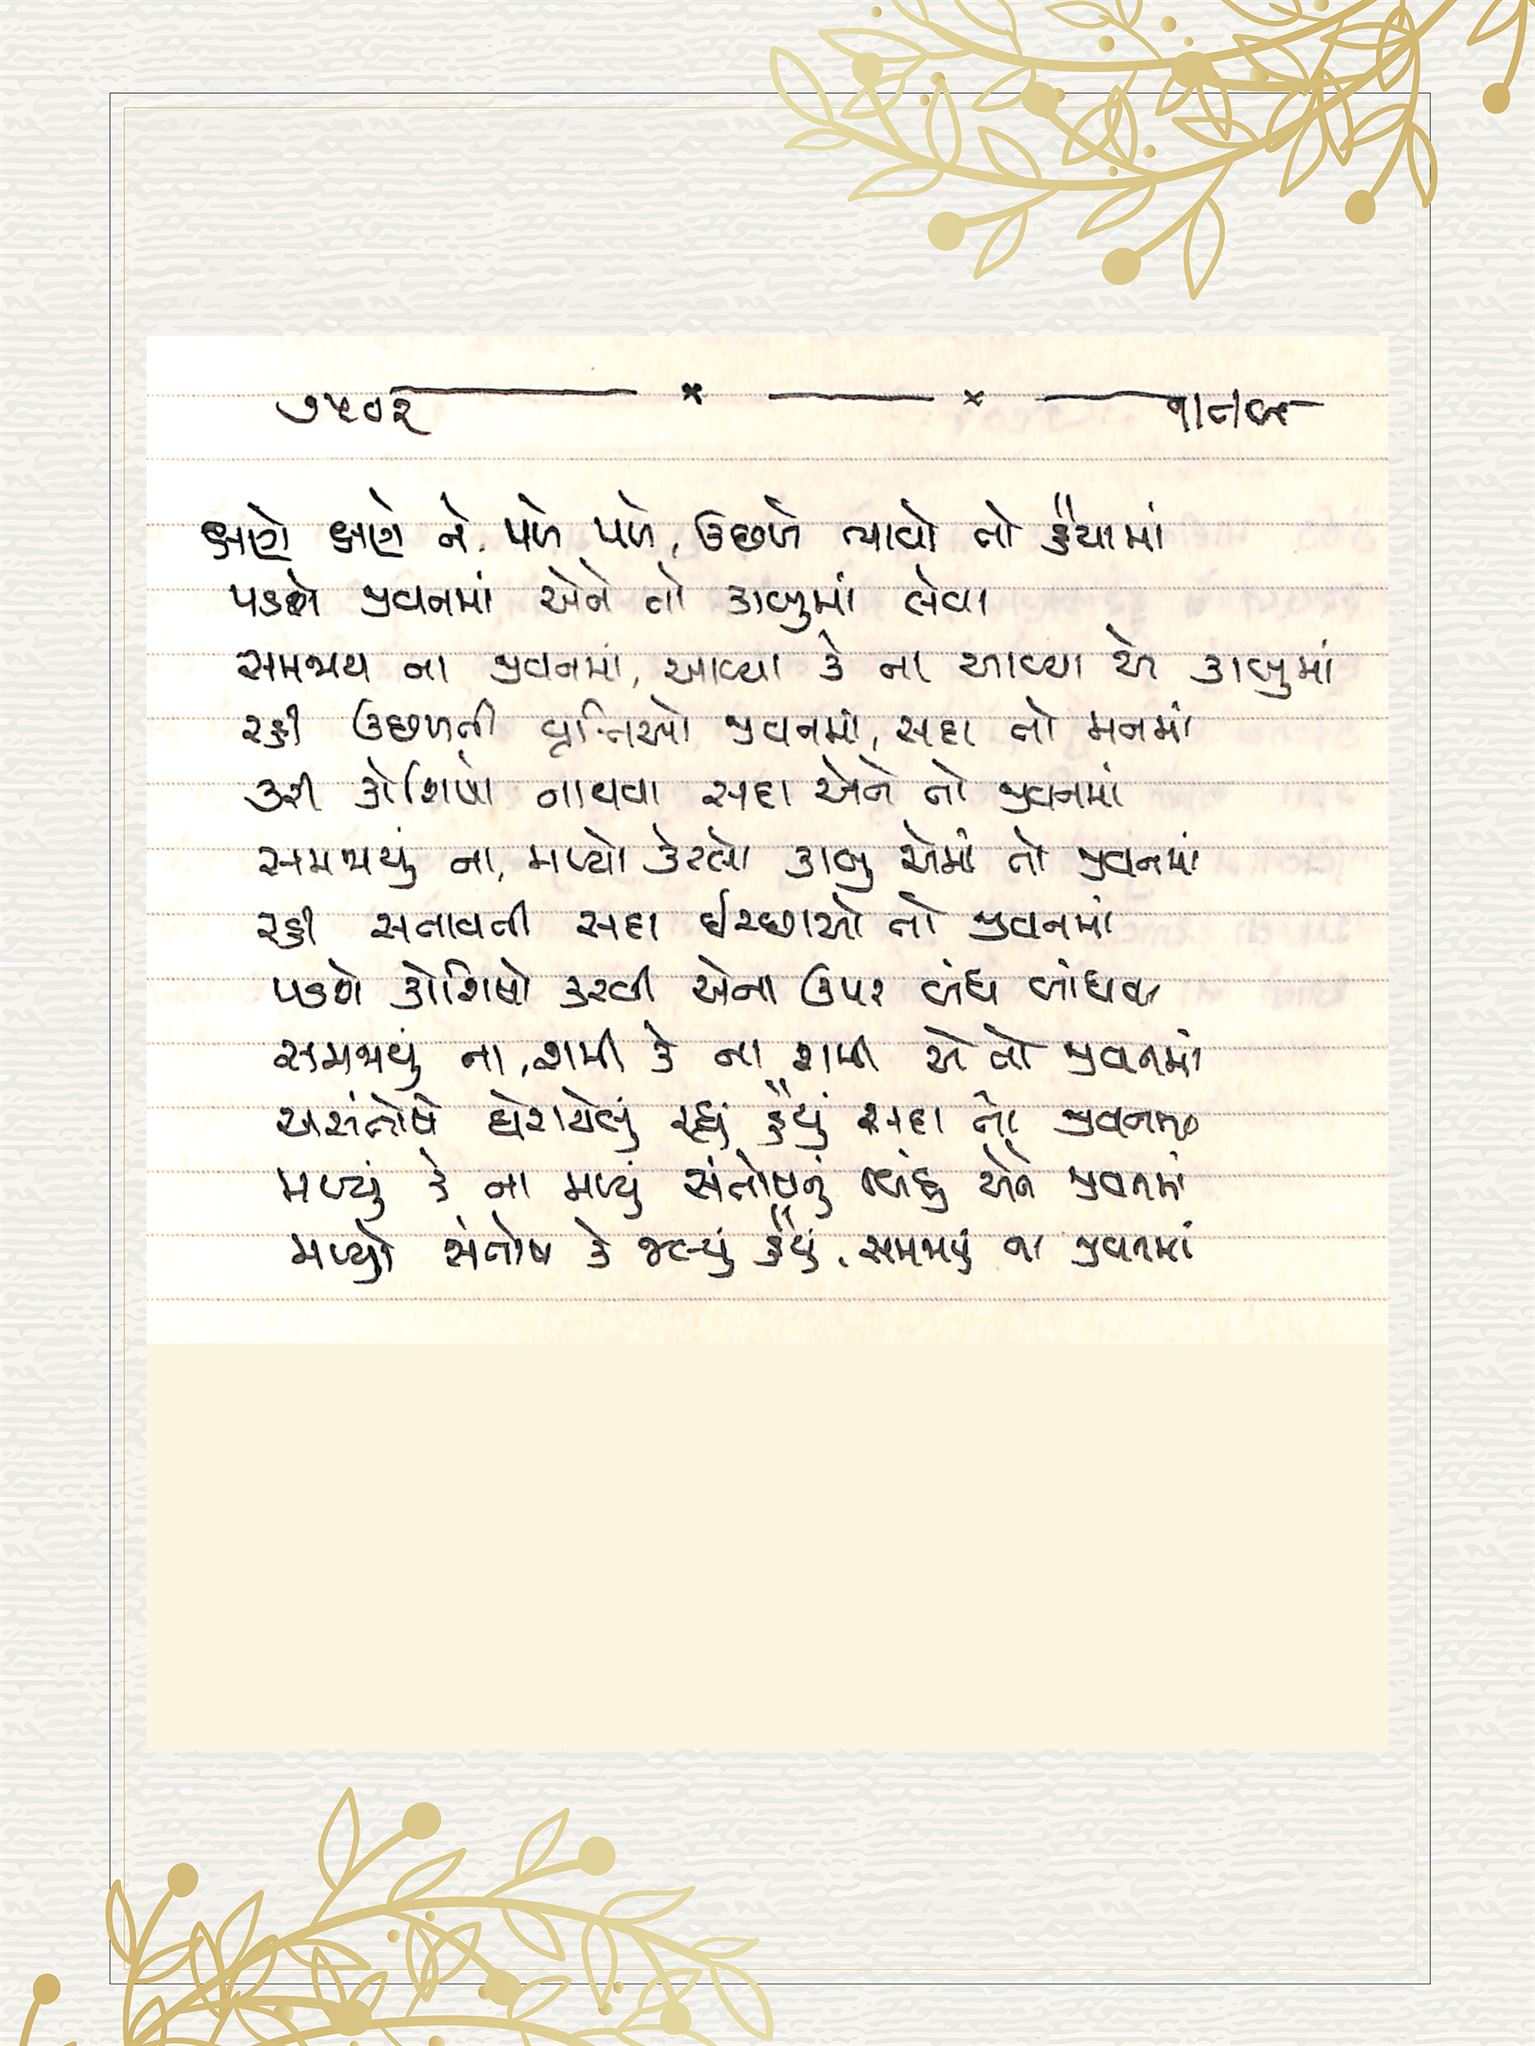 ૭૫૦૨
ક્ષણે ક્ષણે ને પળે પળે, ઉછળે ભાવો તો હૈયામાં
પડશે જીવનમાં એને તો કાબુમાં લેવા
સમજાય ના જીવનમાં, આવ્યા કે ના આવ્યા એ કાબુમાં
રહી ઉછળતી વૃત્તિઓ જીવનમાં, સદા તો મનમાં
કરી કોશિષો નાથવા સદા એને તો જીવનમાં
સમજાયું ના, મળ્યો કેટલો કાબુ એમાં તો જીવનમાં
રહી સતાવતી સદા ઈચ્છાઓ તો જીવનમાં
પડશે કોશિષો કરવી એના ઉપર બંધ બાંધવા
સમજાયું ના, શમી કે ના શમી એ તો જીવનમાં
અસંતોષે ઘેરાયેલું રહ્યું હૈયું સદા તો જીવનમાં
મળ્યું કે ના મળ્યું સંતોષનું બિંદુ એને જીવનમાં
મળ્યો સંતોષ કે જલ્યું હૈયું, સમજાયું ના જીવનમાં